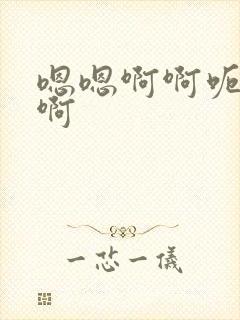 嗯嗯啊啊呃
啊
一芯一儀